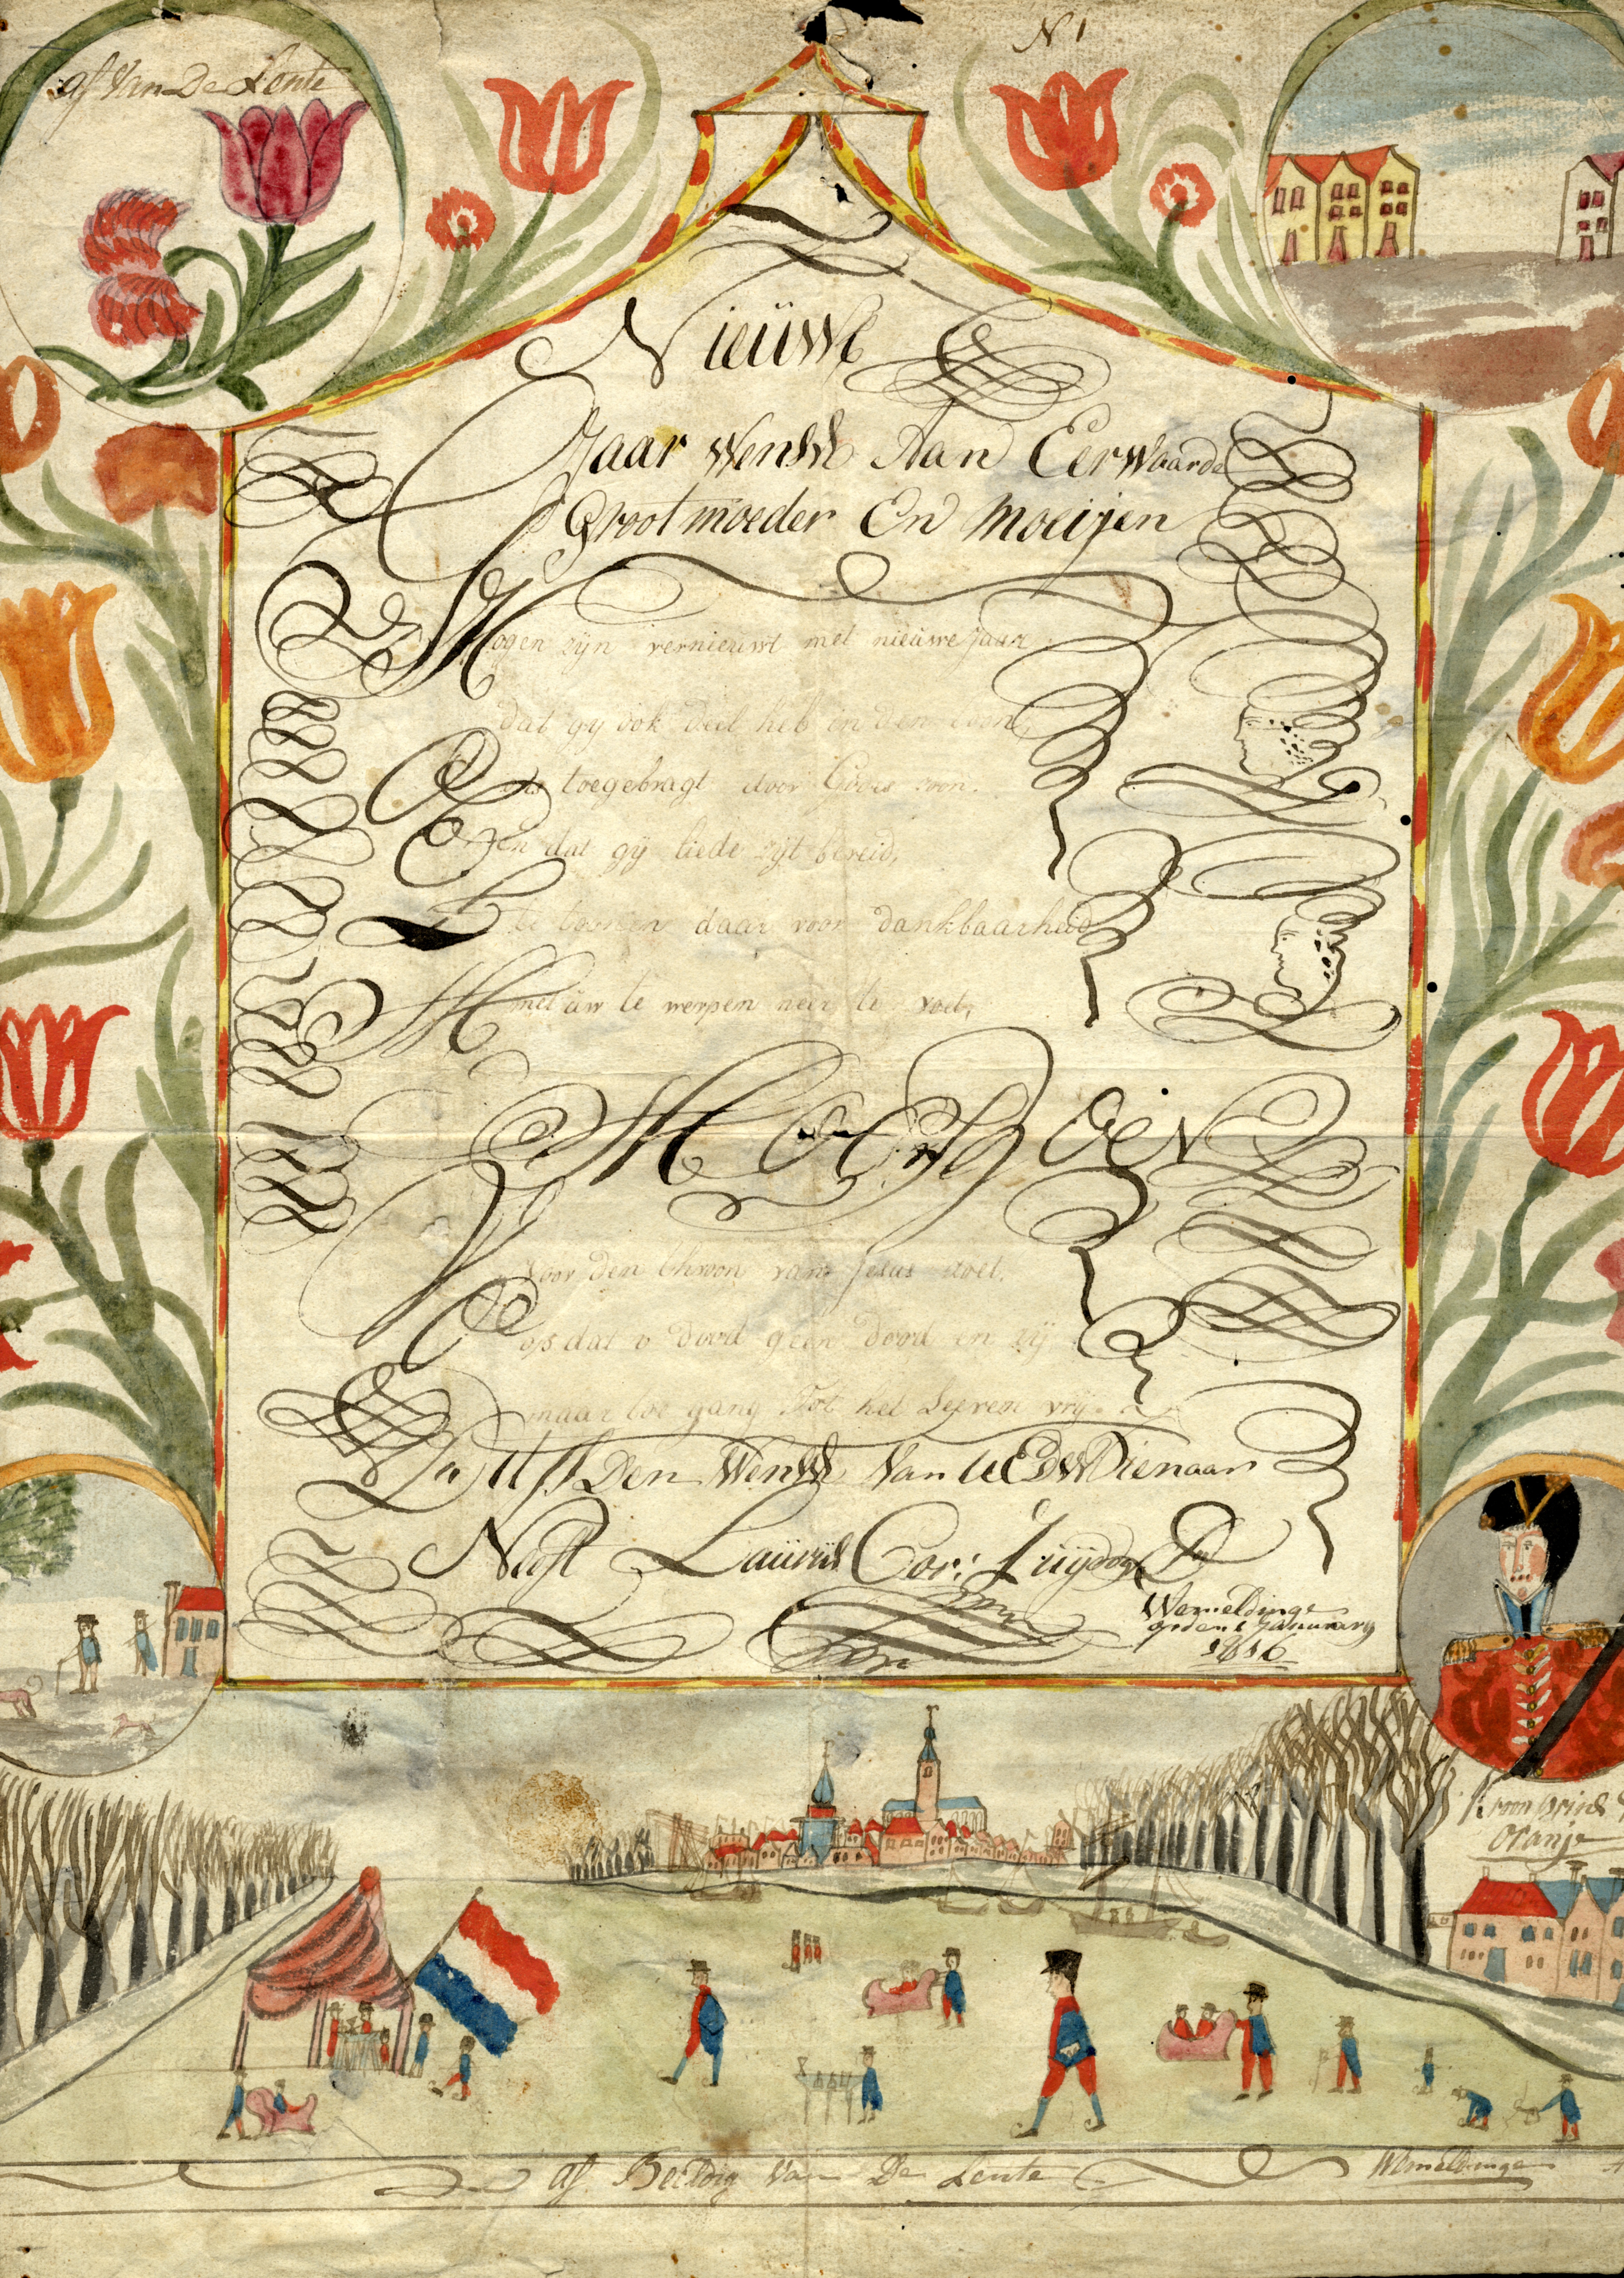 af Van De Lente
N 1
Nieuwe
Jaar Wensch Aan Eerwaarde
Grootmoeder En Moeijen
Mogen zijn vernieuwt met nieuwe Jaar
dat gij ook deel heb in den loon,
toegebragt door Godes zoon.
En dat gij liede zijt bereid,
te toonen daar voor dankbaarheid
Met uw te werpen neer te voet,
Voor den throon van Jesus zoet.
op dat o dood geen dood en zij
maar toe gang Tot het Leeven vrij
Dit Is Den Wensch Van UEDW Dienaar
Neeft Laurus Cor:
Wemeldinge
den 1 January
1816
Kroon prins
oranje
af Beelding Van De Lente
Wemeldinge